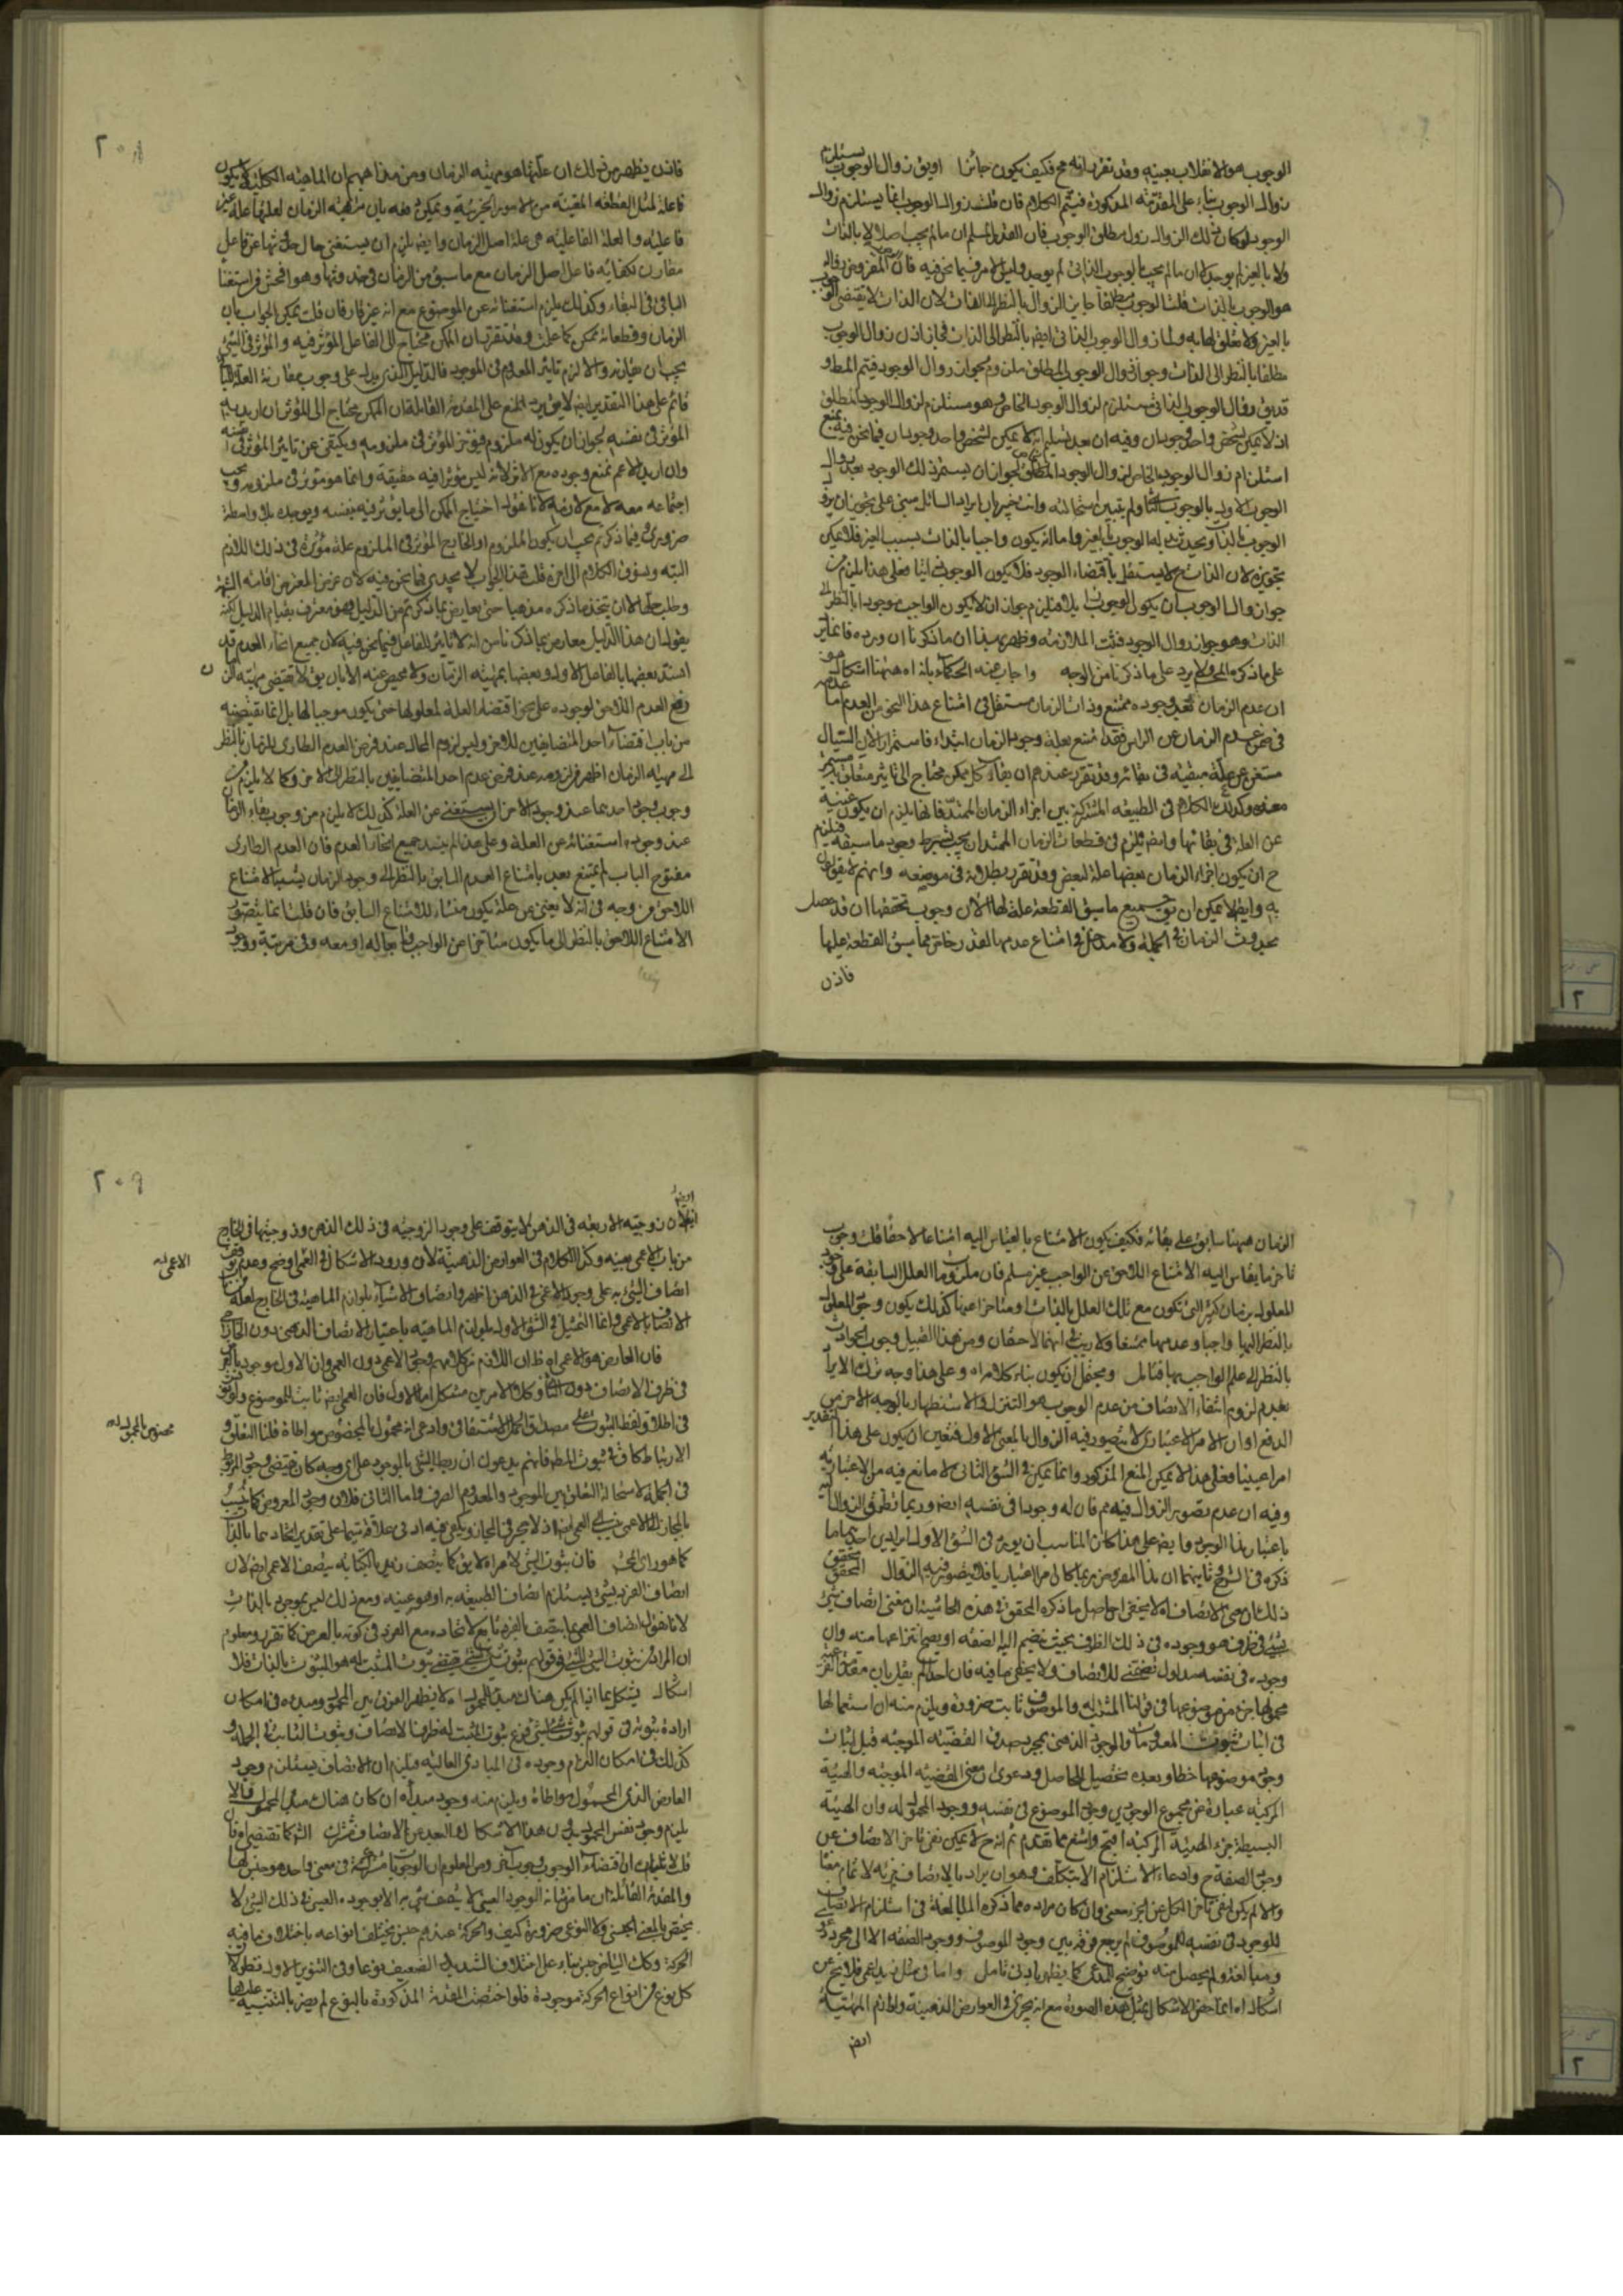 الوجوب هو الانقلاب بعينه وقد تقرر انه مح فكيف يكون جائزا او يق زوال الوجوب يستلزم
زوال الوجوب بناء على المقدمة المذكورة فيتم الكلام فان قلت زوال الوجوب انما يستلزم زوال
الوجود لو كان ذلك الزوال زوال مطلق الوجوب فان القدر المسلم ان ما لم يجب اصلا لا بالذات
ولا بالغير لم يوجد لا ان ما لم يجب بالوجوب الذاتى لم يوجد وليس الامر فيما نحن فيه فان المفروض زواله
هو الوجوب بالذات قلت الوجوب مطلقا جايز الزوال بالنظر الى الذات لان الذات لا يقتضى الوجوب
بالغير ولا تعلق لها به ولما زوال الوجوب الذاتى ايض بالنظر الى الذات فجاز اذن زوال الوجوب
مطلقا بالنظر الى الذات وجواز زوال الوجوب المطلق ملزوم بجواز زوال الوجود فيتم المط و
قد يق زوال الوجوب الذاتى مستلزم لزوال الوجود الخاص وهو مستلزم لزوال الوجود المطلق
اذ لا يمكن لشخص واحد وجودان وفيه ان بعد تسليم انه لا يمكن لشخص واحد وجودان فيما نحن فيه يمنع
استلزام زوال الوجود الخاص لزوال الوجود المطلق لجواز ان يستمر ذلك الوجود بعد زوال
الوجوب الاول بالوجوب الثانى ولم يتبين استحالته وانت خبير بان ايراد السائل مبنى على تجويز ان يزول
الوجوب الذاتى ويحدث بدله الوجوب بالغير واما انه يكون واجبا بالذات بسبب الغير فلا يمكن
تجويزه لان الذات ح لا يستقل باقتضاء الوجود فلا يكون الوجوب ذاتيا فعلى هذا يلزم من
جواز زوال الوجوب ان يكون الوجوب فيلزم جواز ان لا يكون الواجب موجودا بالنظر الى
الذات وهو جواز زوال الوجود فثبت الملازمة وظهر بهذا ان ما ذكرنا ان ورد فانما يرد
على ما ذكره المح ولا يرد على ما ذكرنا من الوجه واجاب عنه الحكماء بان اه ههنا اشكال هو
ان عدم الزمان بعد وجوده ممتنع وذات الزمان مستقل فى امتناع هذا النحو من العدم اما
فى ضمن عدم الزمان عن الراس فقد امتنع بعلة وجود الزمان ابتداء فاستمرار الان السيال
مستغن عن علة مبقية فى بقائه وقد تقرر عندهم ان بقاء كل ممكن محتاج الى تاثير متعلق به مستمر
معه وكذلك الكلام فى الطبيعة المشتركة بين اجزاء الزمان الممتد فانها يلزم ان يكون غنية
عن العلة فى بقائها وايض يلزم فى قطعات الزمان الممتد ان يجب بشرط وجود ما سبقه فيلزم
ح ان يكون اجزاء الزمان بعضها علة لبعض وقد تقرر بطلانه فى موضعه وانهم لا يقولون
به وايض لا يمكن ان يق جميع ما سبق القطعة علة لها لان وجوب تحققها ان قد حصل
بحدوث الزمان فى الجملة ولا مدخل فى امتناع عدمها لقدر خاص مما سبق القطعة عليها
فاذن
٢٠٨
فاذن يظهر من ذلك ان علتها هو مهية الزمان ومن مذاهبهم ان الماهية الكلية لا يكون
فاعلة لمثل القطعة المعينة من الامور الجزئية ويمكن دفعه بان مهية الزمان لعلها علة غير
فاعلية والعلة الفاعلية هى علة اصل الزمان وايض يلزم ان يستغنى حال حدوثها عن فاعل
مقارن لكفاية فاعل اصل الزمان مع ما سبق من الزمان فى حدوثها وهو افحش من استغناء
الباقى فى البقاء وكذلك يلزم استغنائه عن الموضوع مع انه غير قار فان قلت يمكن الجواب بان
الزمان وقطعاته ممكن كما علمت وقد تقرر ان الممكن محتاج الى الفاعل المؤثر فيه والمؤثر فى الشئ
يجب ان يقارنه والا لزم تاثير المعدوم فى الموجود فالدليل الذى يدل على وجوب مقارنة العلة
قائم على هذا التقدير ايض لا يق يرد المنع على المقدمة القائلة بان الممكن محتاج الى المؤثر ان اريد به
المؤثر فى نفسه لجواز ان يكون له ملزوم فيؤثر المؤثر فى ملزومه ويكتفى عن تاثير المؤثر فى نفسه
وان اريد الاعم يمنع وجوده مع الاثر لانه ليس مؤثرا فيه حقيقة وانما هو مؤثر فى ملزومه ويجب
اجتماعه معه لا مع لازمه لانا نقول احتياج الممكن الى ما يؤثر فيه بنفسه ويوجده بلا واسطة
ضرورى وفيما ذكرتم يجب ان يكون الملزوم او الخارج المؤثر فى الملزوم علة مؤثرة فى ذلك اللازم
البتة ويسوق الكلام الى اخره قلت هذا الجواب لا يجدى فيما نحن فيه لان غرض المعترض اقامة الشبهة
وطلب حلها لا ان يتخذ ما ذكره مذهبا حتى يعارض بما ذكرتم من الدليل فهو معترف بقيام الدليل لكنه
يقول ان هذا الدليل معارض بما ذكرنا من انه لا تاثير للفاعل فيما نحن فيه لان جميع انحاء العدم قد
استند بعضها بالفاعل الاول وبعضها بمهية الزمان ولا محيص عنه الا بان يق لا يقتضى مهية الزمان
رفع العدم اللاحق لوجوده على نحو اقتضاء العلة لمعلولها حتى يكون موجبا لها بل انما يقتضيه
من باب اقتضاء احد المتضايفين للاخر وليس لزوم المحال عند فرض العدم الطارى للزمان بالنظر
الى مهية الزمان اظهر من لزومه عند فرض عدم احد المتضايفين بالنظر الى الاخر وكما لا يلزم من
وجوب وجود احدهما عند وجود الاخر ان يستغنى عن العلة كذلك لا يلزم من وجوب بقاء الزمان
عند وجوده استغنائه عن العلة وعلى هذا لم ينسد جميع انحاء العدم فان العدم الطارى
مفتوح الباب لم يمتنع بعد بامتناع العدم السابق بالنظر الى وجود الزمان بسبب الامتناع
اللاحق من وجه فى انه لا يغنى عن علة يكون منشاء للامتناع السابق فان قلت انما يتصور
الامتناع اللاحق بالنظر الى ما يكون متاخرا عن الواجب تابعا له او معه وفى مرتبة وجود
الزمان ههنا سابق على بقائه فكيف يكون الامتناع بالقياس اليه امتناعا لاحقا قلت وجوب
تاخر ما يقاس اليه الامتناع اللاحق عن الواجب غير مسلم فان ملزوما العلل السابقة على وجود
المعلول بزمان كثير التى تكون مع تلك العلل بالذات او متاخرا عنها كذلك يكون وجود المعلول
بالنظر اليها واجبا وعدمها ممتنعا ولا ريب فى انهما لاحقان ومن هذا القبيل وجوب الحوادث
بالنظر الى علم الواجب بها فتامل ويحتمل ان يكون بناء كلامه اه وعلى هذا وجه ترك الايراد
بعدم لزوم انتفاء الاتصاف من عدم الوجوب هو التنزل والاستظهار بالوجه الاخر من
الدفع او ان الامر الاعتبارى لا يتصور فيه الزوال بالمعنى الاول فتعين ان يكون على هذا التقدير
امرا عينيا فعلى هذا لا يمكن المنع المذكور وانما يمكن فى الشق الثانى لا مانع فيه من الاعتبارية
وفيه ان عدم تصوير الزوال فيه مم فان له وجودا فى نفسه ايض وربما تطرق الزوال اليه
باعتبار هذا الوجود وايض على هذا كان المناسب ان يورد فى الشق الاول ايرادين احدهما ما
ذكره فى الشرح ثانيهما ان هذا المفروض ربما كان امرا اعتباريا فلا يتصور فيه الزوال المحقق
ذلك ان معنى الاتصاف اه لا يخفى ان حاصل ما ذكره المحقق فى هذه الحاشية ان معنى اتصاف شئ
بشئ فى ظرف هو وجوده فى ذلك الظرف بحيث ينضم اليه الصفة او يصح انتزاعها منه وان
وجوده فى نفسه مدلول تضمنى للاتصاف ولا يخفى ما فيه فان احدا لم يقل بان مفهوم
محمولها جزء من موضوعها فى قولنا المثلث له والموصوف ثابت ضرورة ويلزم منه ان استعمالها
فى اثبات ثبوت المعدومات والوجود الذهنى بمجرد صدق القضية الموجبة قبل اثبات
وجود موضوعها خطأ وبعده تحصيل للحاصل ودعوى ان معنى القضية الموجبة والهلية
المركبة عبارة عن مجموع الوجودين وجود الموضوع فى نفسه ووجود المحمول له وان الهلية
البسيطة جزء الهلية المركبة اقبح واشنع مما تقدم ثم انه ح لا يمكن نفى تاخر الاتصاف عن
وجود الصفة ح وادعاء الاستلزام الا بتكلف وهو ان يراد بالاتصاف جزئه لا تمام معناه
والا لم يكن لنفى تاخر الكل عن الجزء معنى وان كان مراده مما ذكره المبالغة فى استلزام الاتصاف
للوجود فى نفسه للموصوف لم يرجع فرقه بين وجود الموصوف ووجود الصفة الا الى مجرد
ومبالغة ولم يحصل منه توضيح المدعى كما يظهر بادنى تامل واما فى مثل زيد اعمى فلا يخ عن
اشكال اه انما خص الاشكال بمثل هذه الصورة مع انه يجرى فى العوارض الذهنية ولوازم المهية
ايض
٢٠٩
ايض
لان زوجية الاربعة فى الذهن لا يتوقف على وجود الزوجية فى ذلك الذهن وزوجيتها فى الخارج
من باب الاعمى بعينه وكذا الكلام فى العوارض الذهنية لان ورود الاشكال فى العمى اوضح وعدم توقف
الاعمى له
اتصاف الشئ به على وجود الاعمى فى الذهن اظهر واتصاف الاشياء بلوازم الماهية فى الخارج لعله
الاتصاف بالاعمى وانما التمثيل فى الشق الاول بلوازم الماهية باعتبار الاتصاف الذهنى دون الخارجى
فان العارض هو الاعمى اه ظ ان اللازم من كلامهم وجود الاعمى دون العمى وان الاول موجود بالعرض
فى ظرف الاتصاف دون الثانى وكلا الامرين مشكل اما الاول فان العمى ايض ثابت للموضوع ولو نوقش
فى اطلاق لفظ الثبوت على مصداق الحمل الاشتقاقى وادعى انه محمول بالمخصوص مواطاة قلنا التعلق و
محصوص بالمحمول له
الارتباط كاف فى ثبوت المط فانهم يدعون ان ربط الشئ بالموجود على اى وجه كان يقتضى وجود المربوط
فى الجملة لاستحالة التعلق بين الموجود والمعدوم الصرف واما الثانى فلان وجود المعروض كما ينسب
بالمجاز الى الاعمى ينسب الى العمى ايض اذ لا يحجر فى المجاز ويكفى فيه ادنى علاقة سيما على تقدير اتحادهما بالذات
كما هو راى المح فان ثبوت الشئ لامر اه لا يق كما يتصف زيد بالكتابة يتصف الاعمى ايض لان
اتصاف الفرد بشئ يستلزم اتصاف الطبيعة به او هو عينه ومع ذلك ليس بموجود بالذات
لانا نقول اتصاف العمى بما يتصف به الفرد تابع لاتحاده مع الفرد فى كونه بالعرض كما تقرر ومعلوم
ان المراد من ثبوت الشئ للشئ فى قولهم ثبوت شئ لشئ يقتضى ثبوت المثبت له هو الثبوت بالذات فلا
اشكال يشكل بما اذا لم يكن هناك مبدأ المحمول اه لا يظهر الفرق بين المحمول ومبدئه فى امكان
ارادة ثبوته فى قولهم ثبوت شئ لشئ فرع ثبوت المثبت له ظرفا لاتصاف وثبوت الثابت فى الجملة و
كذلك فى امكان التزام وجوده فى المبادى العالية فيلزم ان الاتصاف يستلزم وجود
العارض الذى المحمول مواطاة ويلزم منه وجود مبدأه ان كان هناك مبدأ المحمول والا
يلزم وجود نفس المحمول بدون هذا الاشكال
والمقدمة القائلة ان ما من شانه الوجود العينى لا يتصف شئ به الا بوجوده العينى فى ذلك الشئ لا
يختص بالمعنى الجنسى ولا النوعى ضرورة كيف والحركة عندهم جنس يختلف انواعه باختلاف ما فيه
الحركة وكك البياض جنس بناء على اختلاف الشديد والضعيف نوعا وفى التنوير الاول
كل نوع من انواع الحركة موجودة فلو اختصت المقدمة المذكورة بالنوع لم يضر بالتنبيه عليها